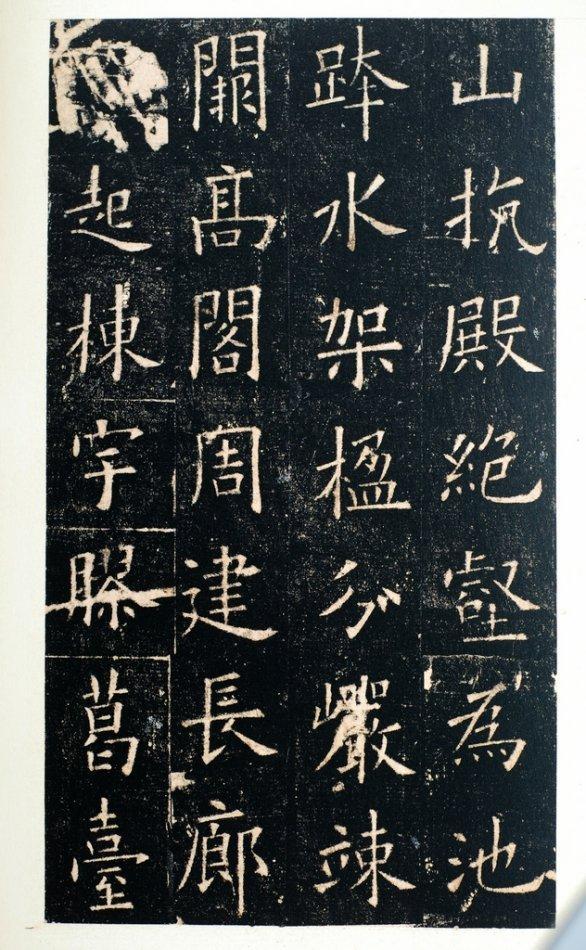 山抗殿絶壑為池
跨水架楹分巖竦
闕高閣周建長廊
起棟宇膠葛臺